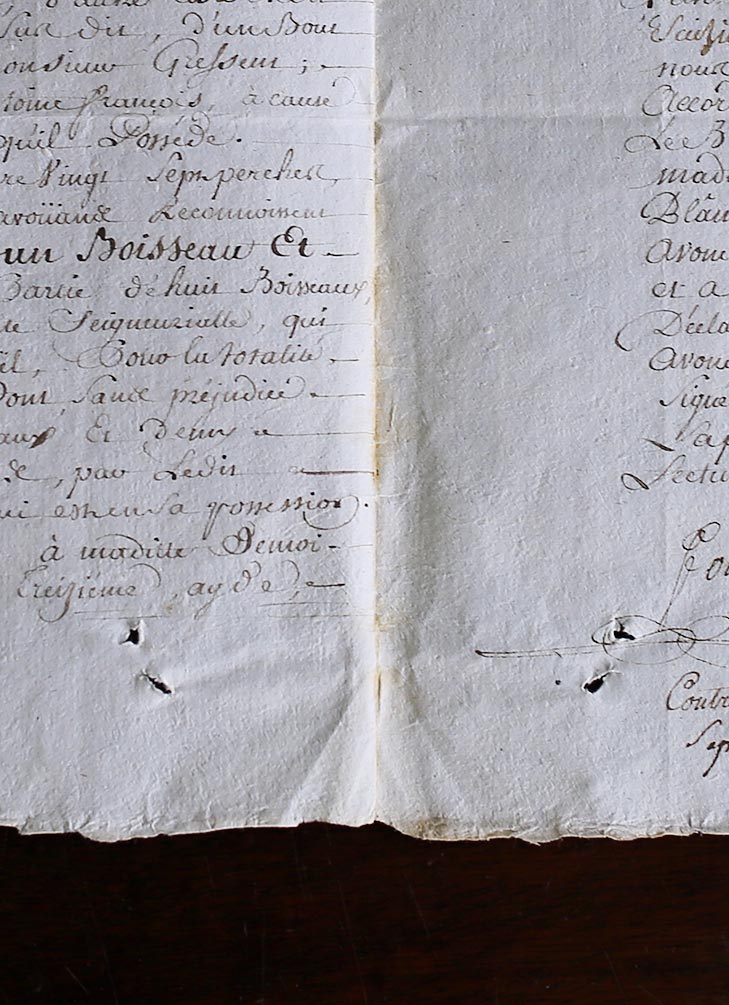 Sur dit, d'un Bout
onsieur Gressent ; -
toine françois, à cause
quil Possède.
re Vingt Sept perches,
avoüande Reconnoissent
un Boisseau Et -
Partie de huit Boisseaux,
te Seigneurialle, qui
il, Pour la totalité -
Dont, Sans préjudice -
aux Et Demy -
de, par Ledit -
ui est en Sa possession.
à madille Demoi-
treiziéme, ayde, -
nous
Accor
Lee B
mad
Blâm
avoue
et a
Décla
avoue
signé
Lectu
Contr
Sep